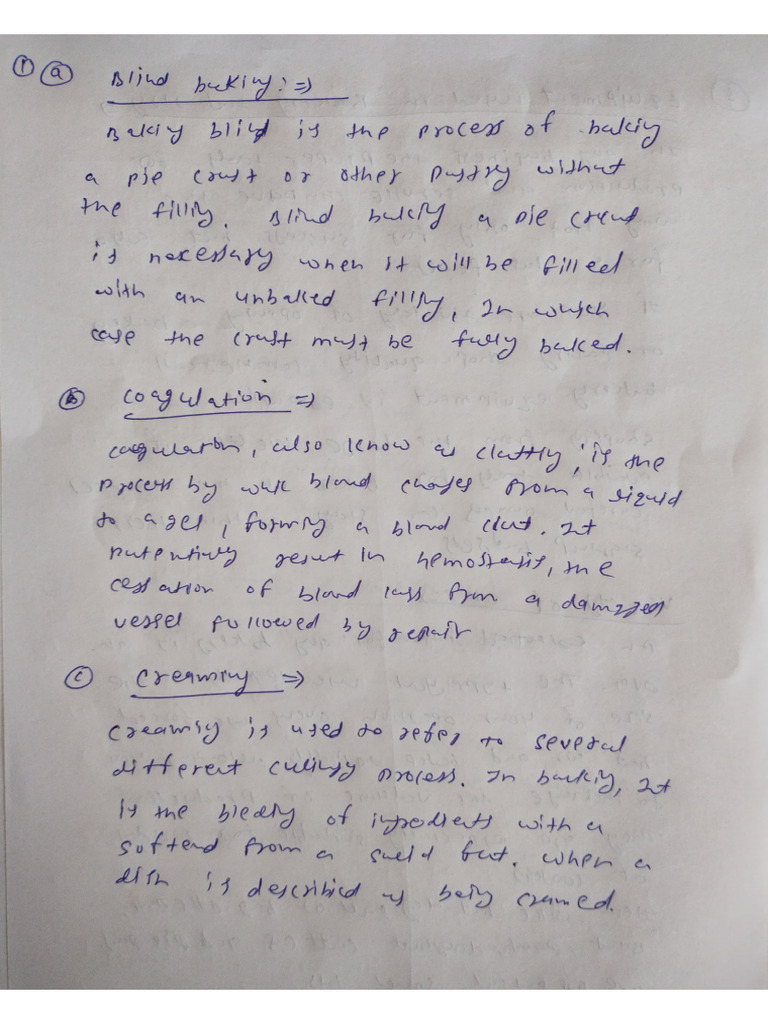 ① ⓐ Blind baking :⇒
Baking blind is the process of baking
a pie crust or other pastry without
the filling. Blind baking a pie crust
is necessary when it will be filled
with an unbaked filling, In which
case the crust must be fully baked.
ⓑ coagulation ⇒
coagulation, also know as clotting, is the
process by blood changes from a liquid
to a gel, forming a blood clot. It
potentially result in hemostasis, the
cessation of blood loss from a damaged
vessel followed by repair
ⓒ creaming ⇒
creaming is used to refer to several
different process. In baking, It
is the of ingredients with a
softend from a solid fat. when a
dish is described as being cramed.